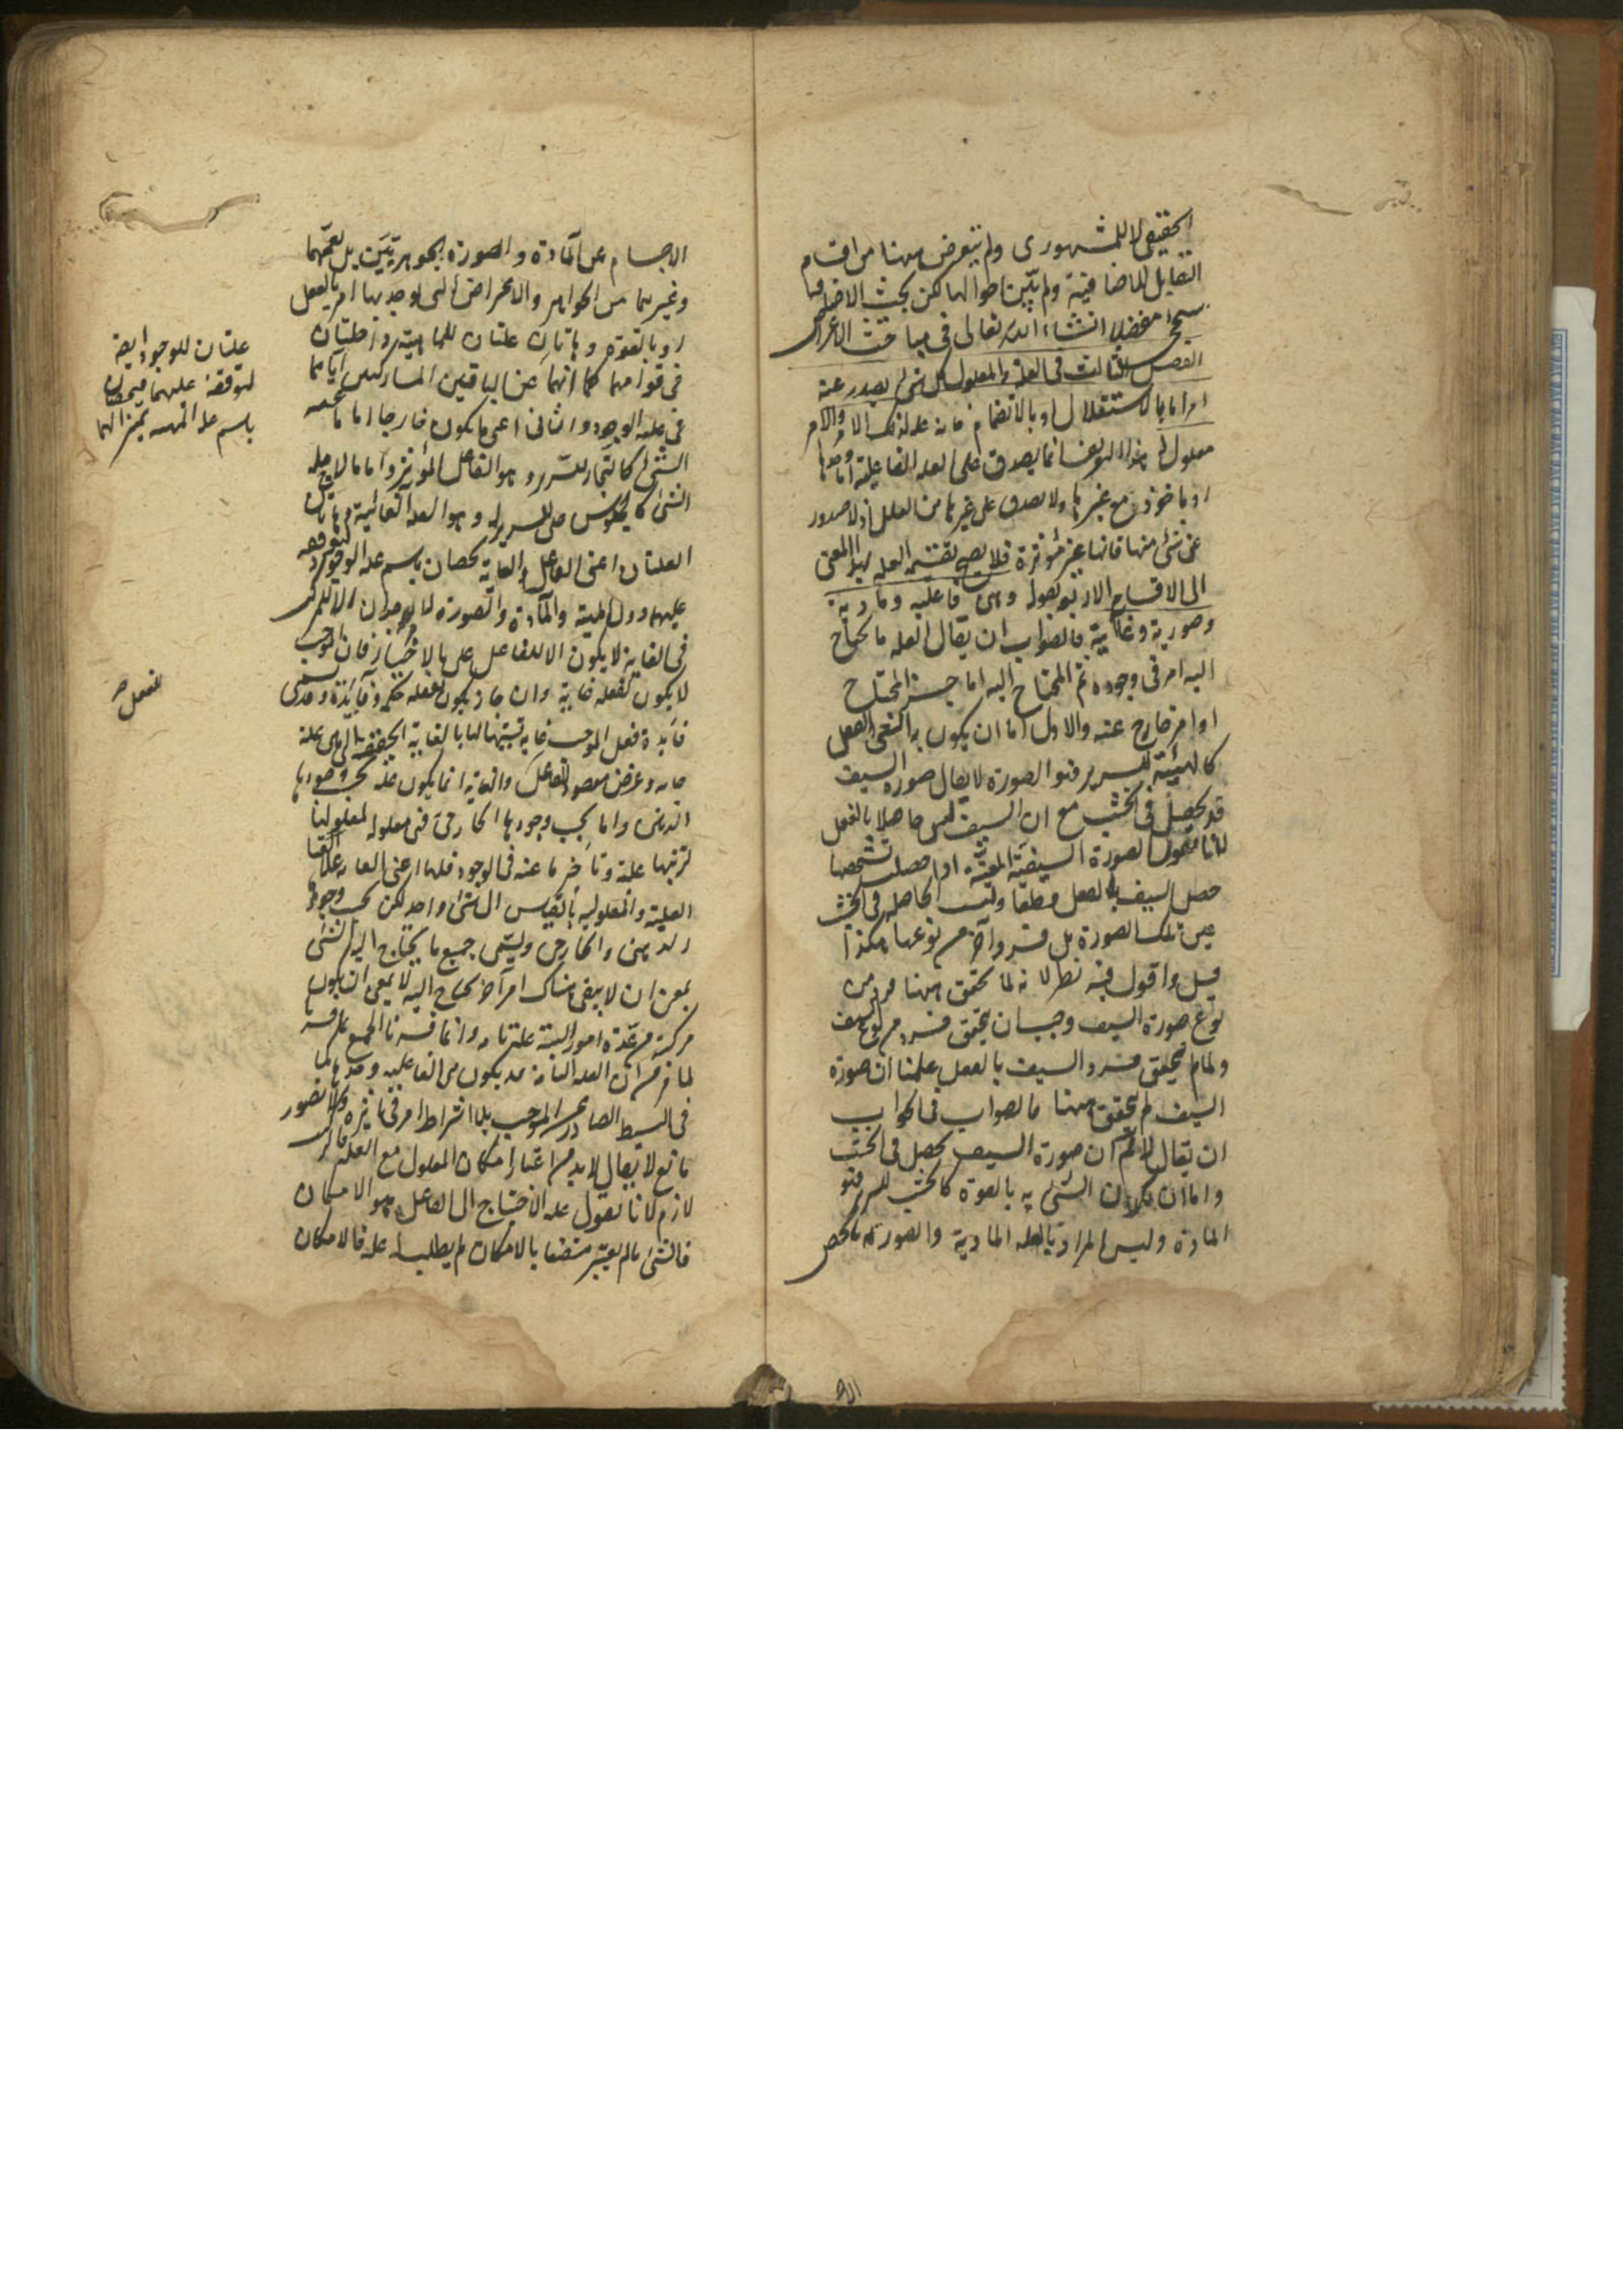 الحقيقى لا المشهورى ولم يتعرض ههنا من اقسام
التقابل للاضافية ولم يبين احوالها لكن بحث الاضافة
سيجئ مفصلا انشاء الله تعالى فى مباحث الاعراض
الفصل الثالث فى العلة والمعلول كل شئ يصدر عنه
امر اما بالاستقلال او بالانضمام فانه علة لذلك الامر والامر
معلول له هذا التعريف انما يصدق على العلة الفاعلية اما وحدها
او ماخوذة مع غيرها ولا يصدق على غيرها من العلل اذ لا صدور
عن شئ منها فانها غير مؤثرة فلا يصح تقسيم العلة بهذا المعنى
الى الاقسام الاربعة بقوله وهى فاعلية ومادية
وصورية وغائية فالصواب ان يقال العلة ما يحتاج
اليه امر فى وجوده ثم المحتاج اليه اما جزء المحتاج
او امر خارج عنه والاول اما ان يكون به الشئ بالفعل
كالهيئة للسرير فهو الصورة لا يقال صورة السيف
قد يحصل فى الخشب مع ان السيف ليس حاصلا بالفعل
لانا نقول الصورة السيفية المعينة اذا حصلت بشخصها
حصل السيف بالفعل قطعا وليست الحاصلة فى الخشب
عين تلك الصورة بل فرد آخر من نوعها هكذا
قيل واقول فيه نظر لانه لما تحقق ههنا فرد من
نوع صورة السيف وجب ان يتحقق فرد من نوع السيف
ولما لم يتحقق فرد السيف بالفعل علمنا ان صورة
السيف لم يتحقق ههنا فالصواب فى الجواب
ان يقال لا نم ان صورة السيف يحصل فى الخشب
واما ان يكون الشئ به بالقوة كالخشب للسرير فهو
المادة وليس المراد بالعلة المادية والصورية ما يخص
الاجسام من المادة والصورة الجوهريتين بل يعمهما
وغيرهما من الجواهر والاعراض التى يوجد بها امر بالفعل
او بالقوة وهاتان علتان للماهية داخلتان
فى قوامها كما انهما
علتان للوجود ايضا
لتوقفه عليهما فيخصان
باسم علة الماهية تمييزا لهما
عن الباقيتين المشاركتين اياهما
فى علية الوجود والثانى اعنى ما يكون خارجا اما ما منه
الشئ كالنجار للسرير وهو الفاعل المؤثر واما ما لاجله
الشئ كالجلوس على السرير له وهو العلة الغائية وهاتان
العلتان اعنى الفاعل والغاية يخصان باسم علة الوجود لتوقفه
عليهما دون الماهية والمادة والصورة لا يوجدان الا للمركب
والغاية لا يكون الا للفاعل بالاختيار فان الموجب
لا يكون لفعله غاية وان جاز ان يكون لفعله حكمة وفائدة وقد يسمى
فائدة فعل الموجب غاية تشبيها لها بالغاية الحقيقية التى هى علة
غائية وغرض مقصود للفاعل والغاية انما يكون علة بحسب وجودها
الذهنى واما بحسب وجودها الخارجى فهى معلولة لمعلولها
لترتبها عليه وتاخرها عنه فى الوجود فلها اعنى للغاية علاقتا
العلية والمعلولية بالقياس الى شئ واحد لكن بحسب وجوديها
الذهنى والخارجى ويسمى جميع ما يحتاج اليه الشئ
بمعنى ان لا يبقى هناك امر آخر يحتاج اليه لا بمعنى ان يكون
مركبة من عدة امور البتة علة تامة وانما فسرنا الجميع بما فسرنا
لما عرفت ان العلة التامة قد يكون هى الفاعلية وحدها كما
فى البسيط الصادر عن الموجب بلا اشتراط امر فى تاثيره ولا تصور
مانع لا يقال لا بد من اعتبار امكان المعلول مع العلة فالتركيب
لازم لانا نقول علة الاحتياج الى الفاعل هو الامكان
فالشئ ما لم يعتبر متصفا بالامكان لم يطلب له علة فالامكان